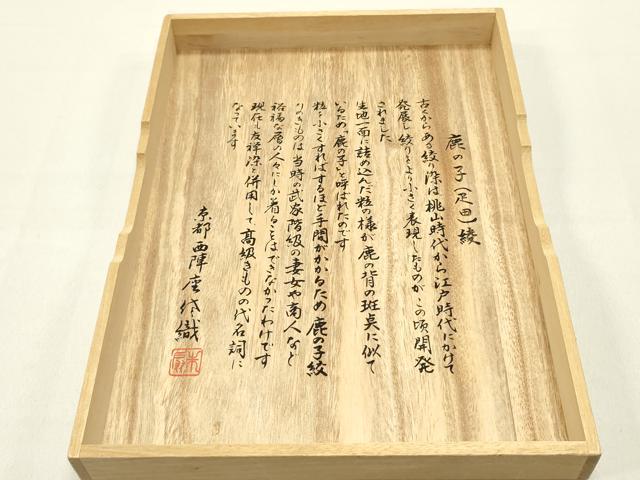 鹿の子(疋田)絞
古くからある絞り染は桃山時代から江戸時代にかけて
発展し絞りをより小さく表現したものがこの頃開発
されました
生地一面に詰め込んだ粒の様が鹿の背の斑点に似て
いるため「鹿の子」と呼ばれたのです
粒を小さくすればするほど手間がかかるため鹿の子絞
りのきものは当時の武家階級の妻女や商人など
裕福な層の人々にしか着ることはできなかったわけです
現在も友禅染と併用して高級きものの代名詞に
なっています
京都西陣 織